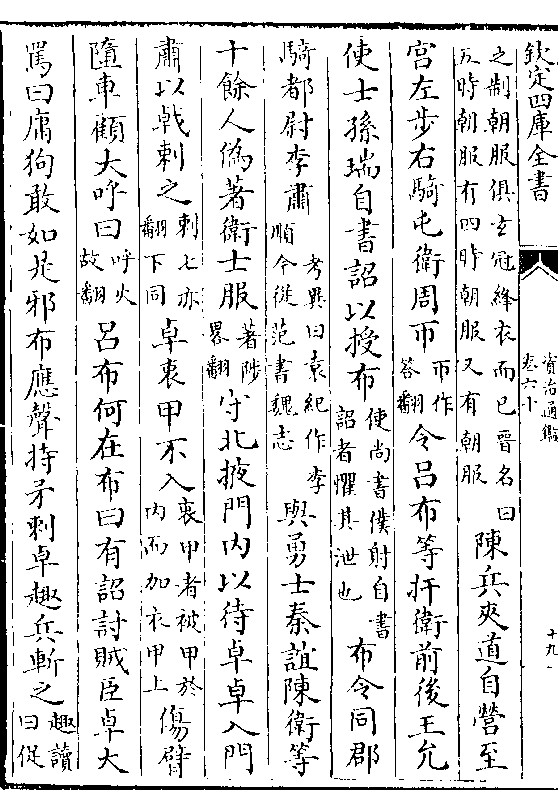 欽定四庫全書
資治通鑑
卷六十
十九
之制朝服俱玄冠絳衣而已晉名曰
五時朝服有四時朝服又有朝服
陳兵夾道自營至
宫左步右騎屯衛周帀
帀作
答翻
令吕布等扞衛前後王允
使士孫瑞自書詔以授布
使尚書僕射自書
詔者懼其泄也
布令同郡
騎都尉李肅
考異曰袁紀作李
順今從范書魏志
與勇士秦誼陳衛等
十餘人偽著衛士服
著陟
畧翻
守北掖門内以待卓卓入門
肅以戟刺之
刺七亦
翻下同
卓衷甲不入
衷甲者被甲於
内而加衣甲上
傷臂
墮車顧大呼曰
呼火
故翻
吕布何在布曰有詔討賊臣卓大
罵曰庸狗敢如是邪布應聲持矛刺卓趣兵斬之
趣讀
曰促